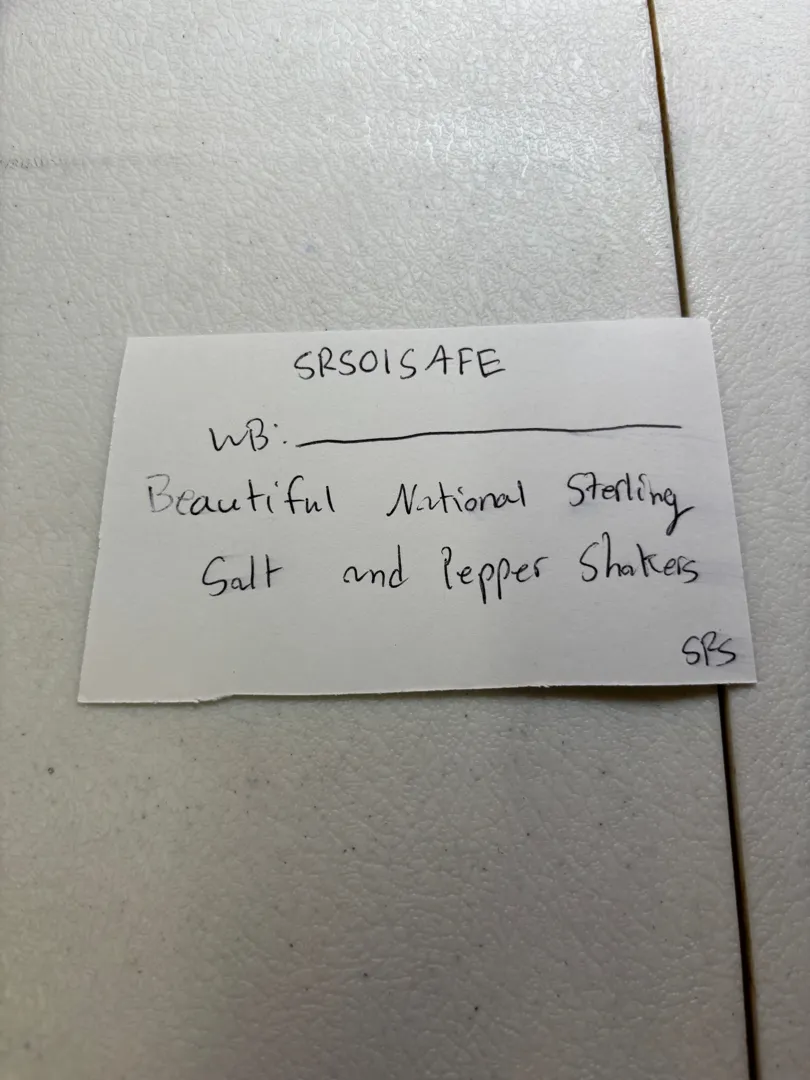 SRS01SAFE
WB: ____________________
Beautiful National Sterling
Salt and Pepper Shakers
SRS